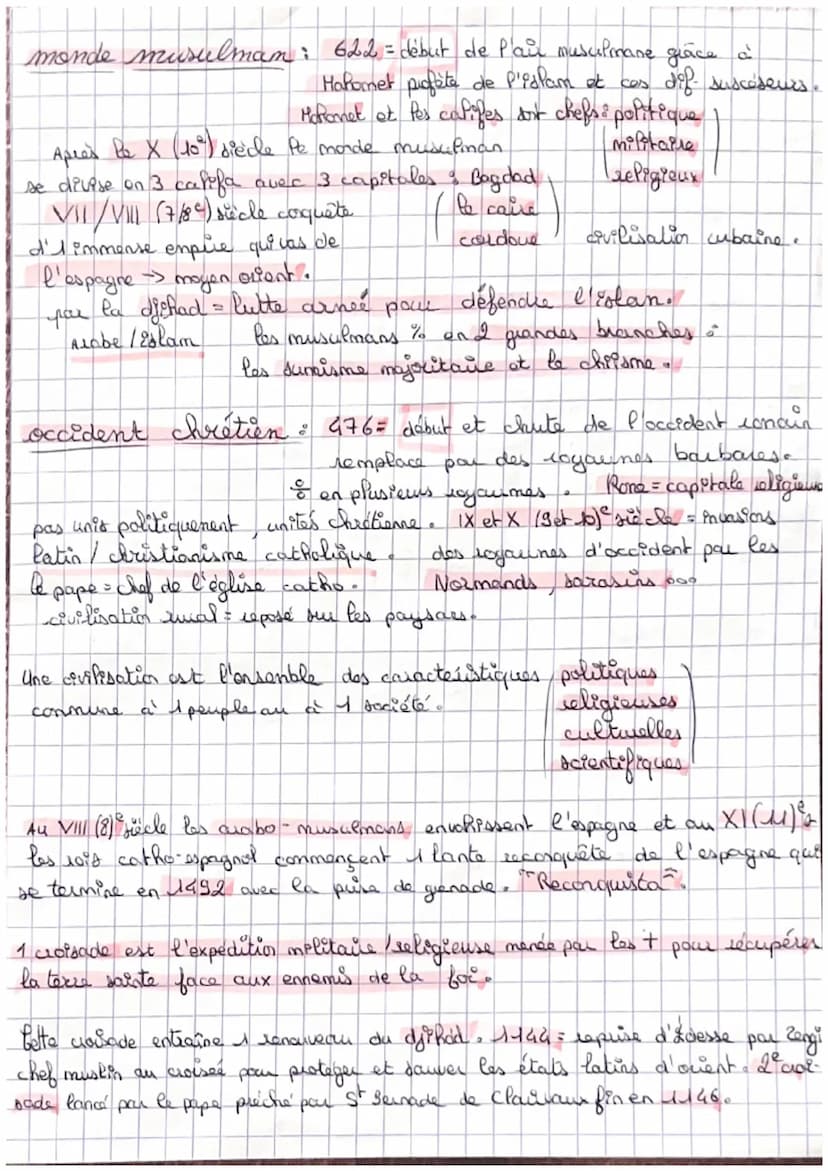 monde musulman : 622 = début de l'air musulmane grâce à
Mahomet profète de l'islam et ces dif. suscéseurs.
Mahomet et les califes sont chefs : politique
militaire
religieux
Après le X (10e) siècle le monde musulman
se divise en 3 califa avec 3 capitales : Bagdad
le caire
cordoue
civilisation urbaine.
VII/VIII (7/8e) siècle coquête
d'1 immense empire qui vas de
l'espagne → moyen orient.
par la djihad = lutte armée pour défendre l'islam.
Arabe / islam
les musulmans % en 2 grandes branches :
les sunnisme majoritaire et le chiisme.
occident chrétien : 476 = début et chute de l'occident romain
remplace par des royaumes barbares.
% en plusieurs royaumes. Rome = capitale religieus
pas unis politiquement, unités chrétienne. IX et X (9 et 10)e siècle = invasions
latin / christianisme catholique. des royaumes d'occident par les
le pape = chef de l'église catho. Normands, sarasins ...
civilisation rural = reposé sur les paysans.
Une civilisation est l'ensemble des caracteristiques politiques
religieuses
culturelles
scientifiques
commune à 1 peuple au à 1 société.
Au VIII (8)e siècle les arabo-musulmans envahissent l'espagne et au XI (11)e s
les rois catho-espagnol commençent 1 lante reconquête de l'espagne qui
se termine en 1492 avec la prise de grenade. "Reconquista".
1 croisade est l'expédition militaire / religieuse menée par les + pour récupérer
la terre sainte face aux ennemis de la foi.
Cette croisade entraîne 1 renouveau du djihad. 1144 = reprise d'Edesse par Zengi
chef muslin au croisée pour protéger et sauver les états latins d'orient. 2e croi-
sade lancé par le pape prêché par St Bernade de Clairvaux fin en 1146.